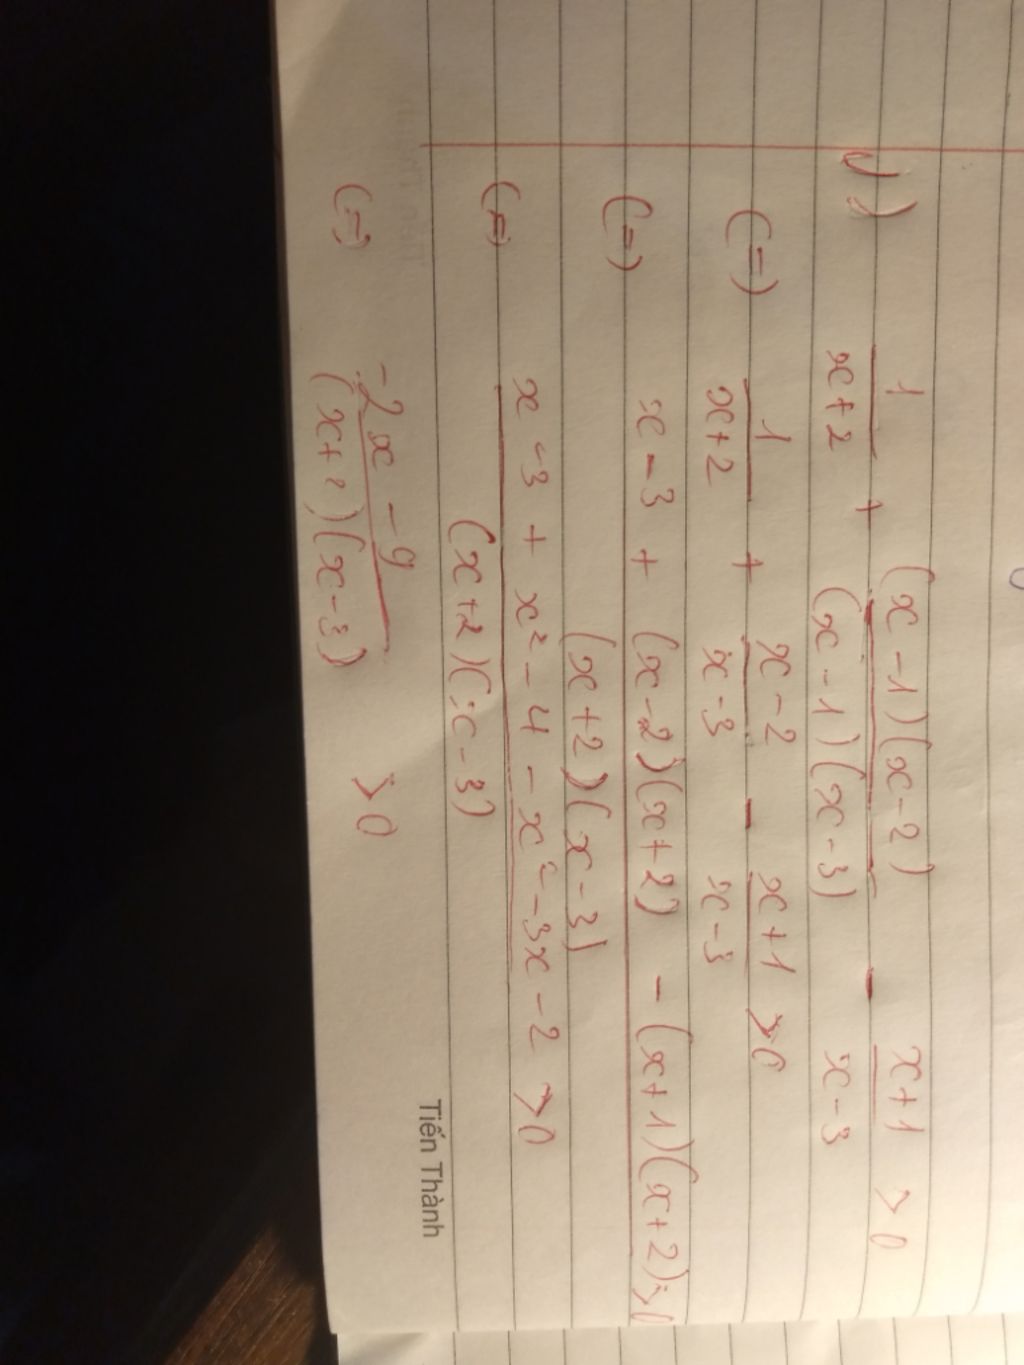 c) 1/(x+2) + (x-1)(x-2)/(x-1)(x-3) - (x+1)/(x-3) > 0
(=) 1/(x+2) + (x-2)/(x-3) - (x+1)/(x-3) > 0
(=) x-3 + (x-2)(x+2) - (x+1)(x+2) / (x+2)(x-3) > 0
(=) x-3 + x² - 4 - x² - 3x - 2 / (x+2)(x-3) > 0
(=) -2x - 9 / (x+2)(x-3) > 0
Tiến Thành